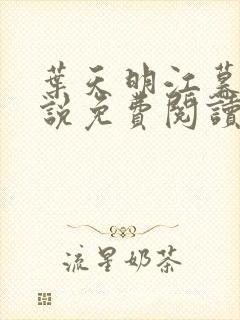 葉天明江幕
說免費閱讀
流星奶茶